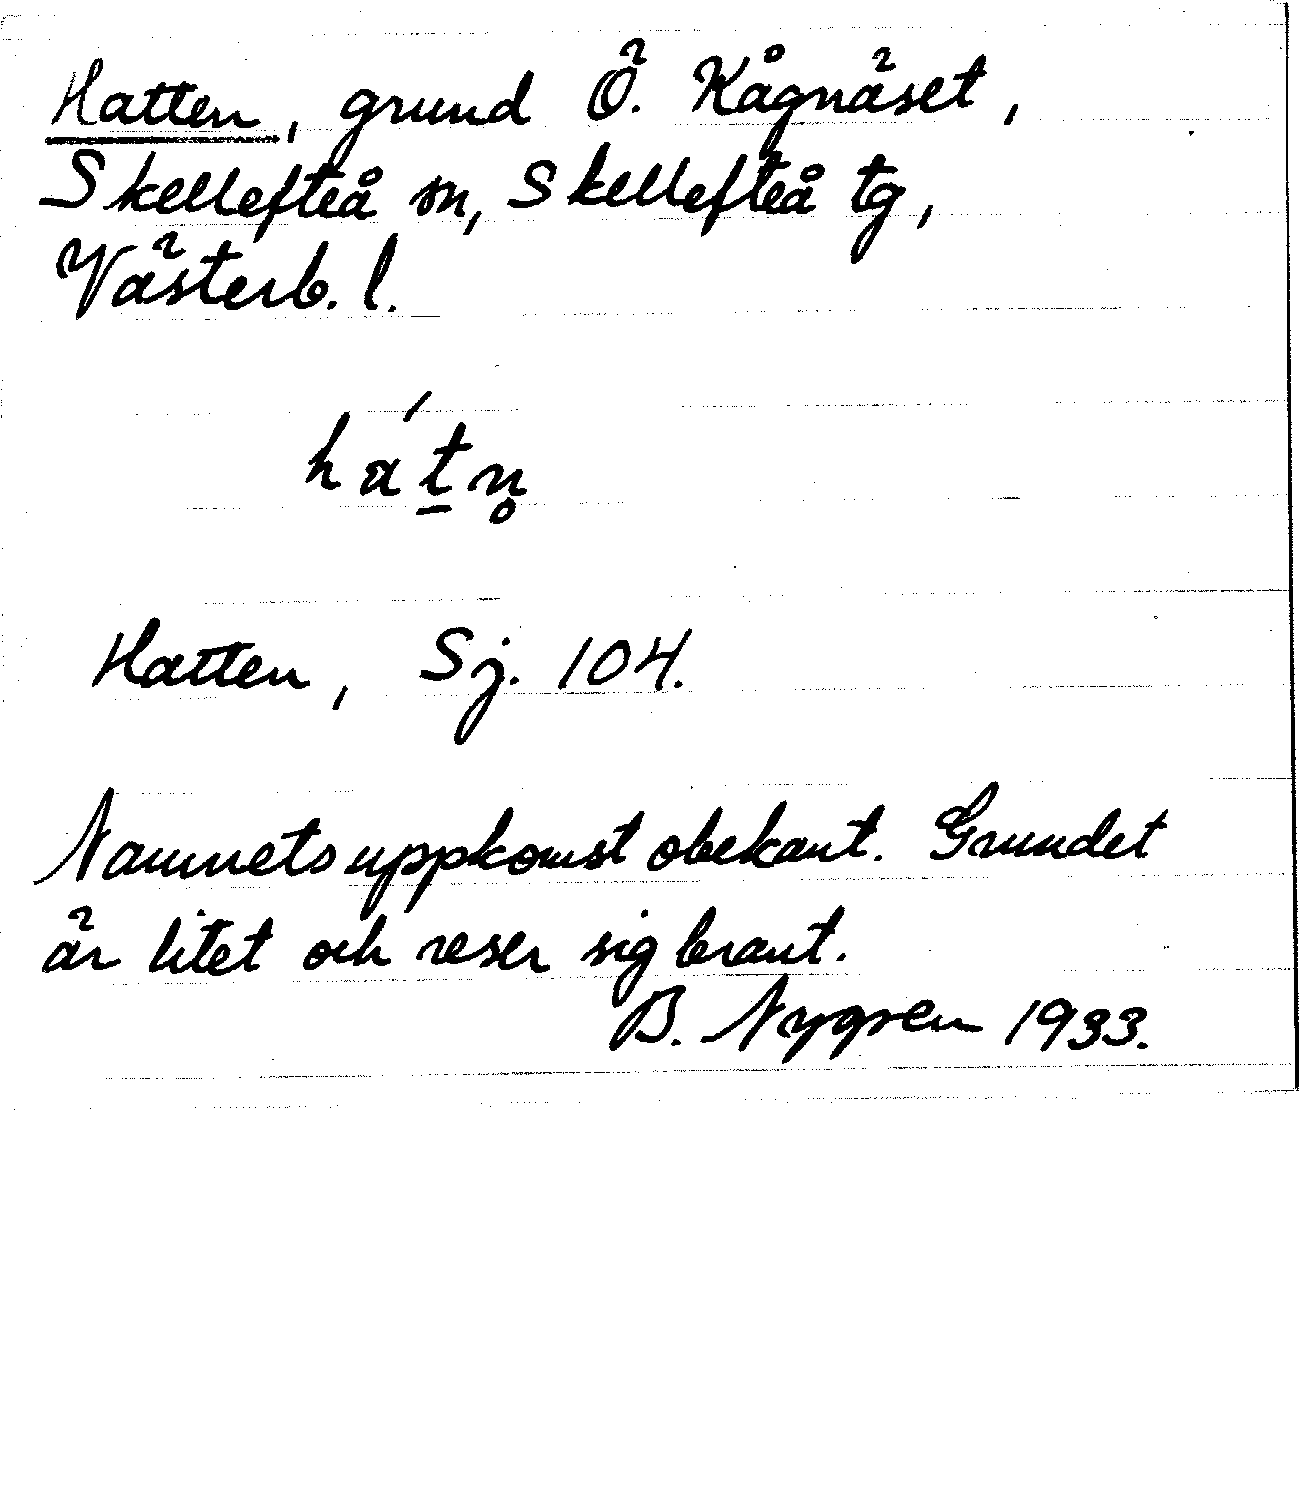 Hatten, grund Ö. Kågnäset,
Skellefteå sn, Skellefteå tg,
Västerb. l.
há̱tn̥
Hatten, Sj. 104.
Namnets uppkomst obekant. Grundet
är litet och reser sig brant.
B. Nygren 1933.